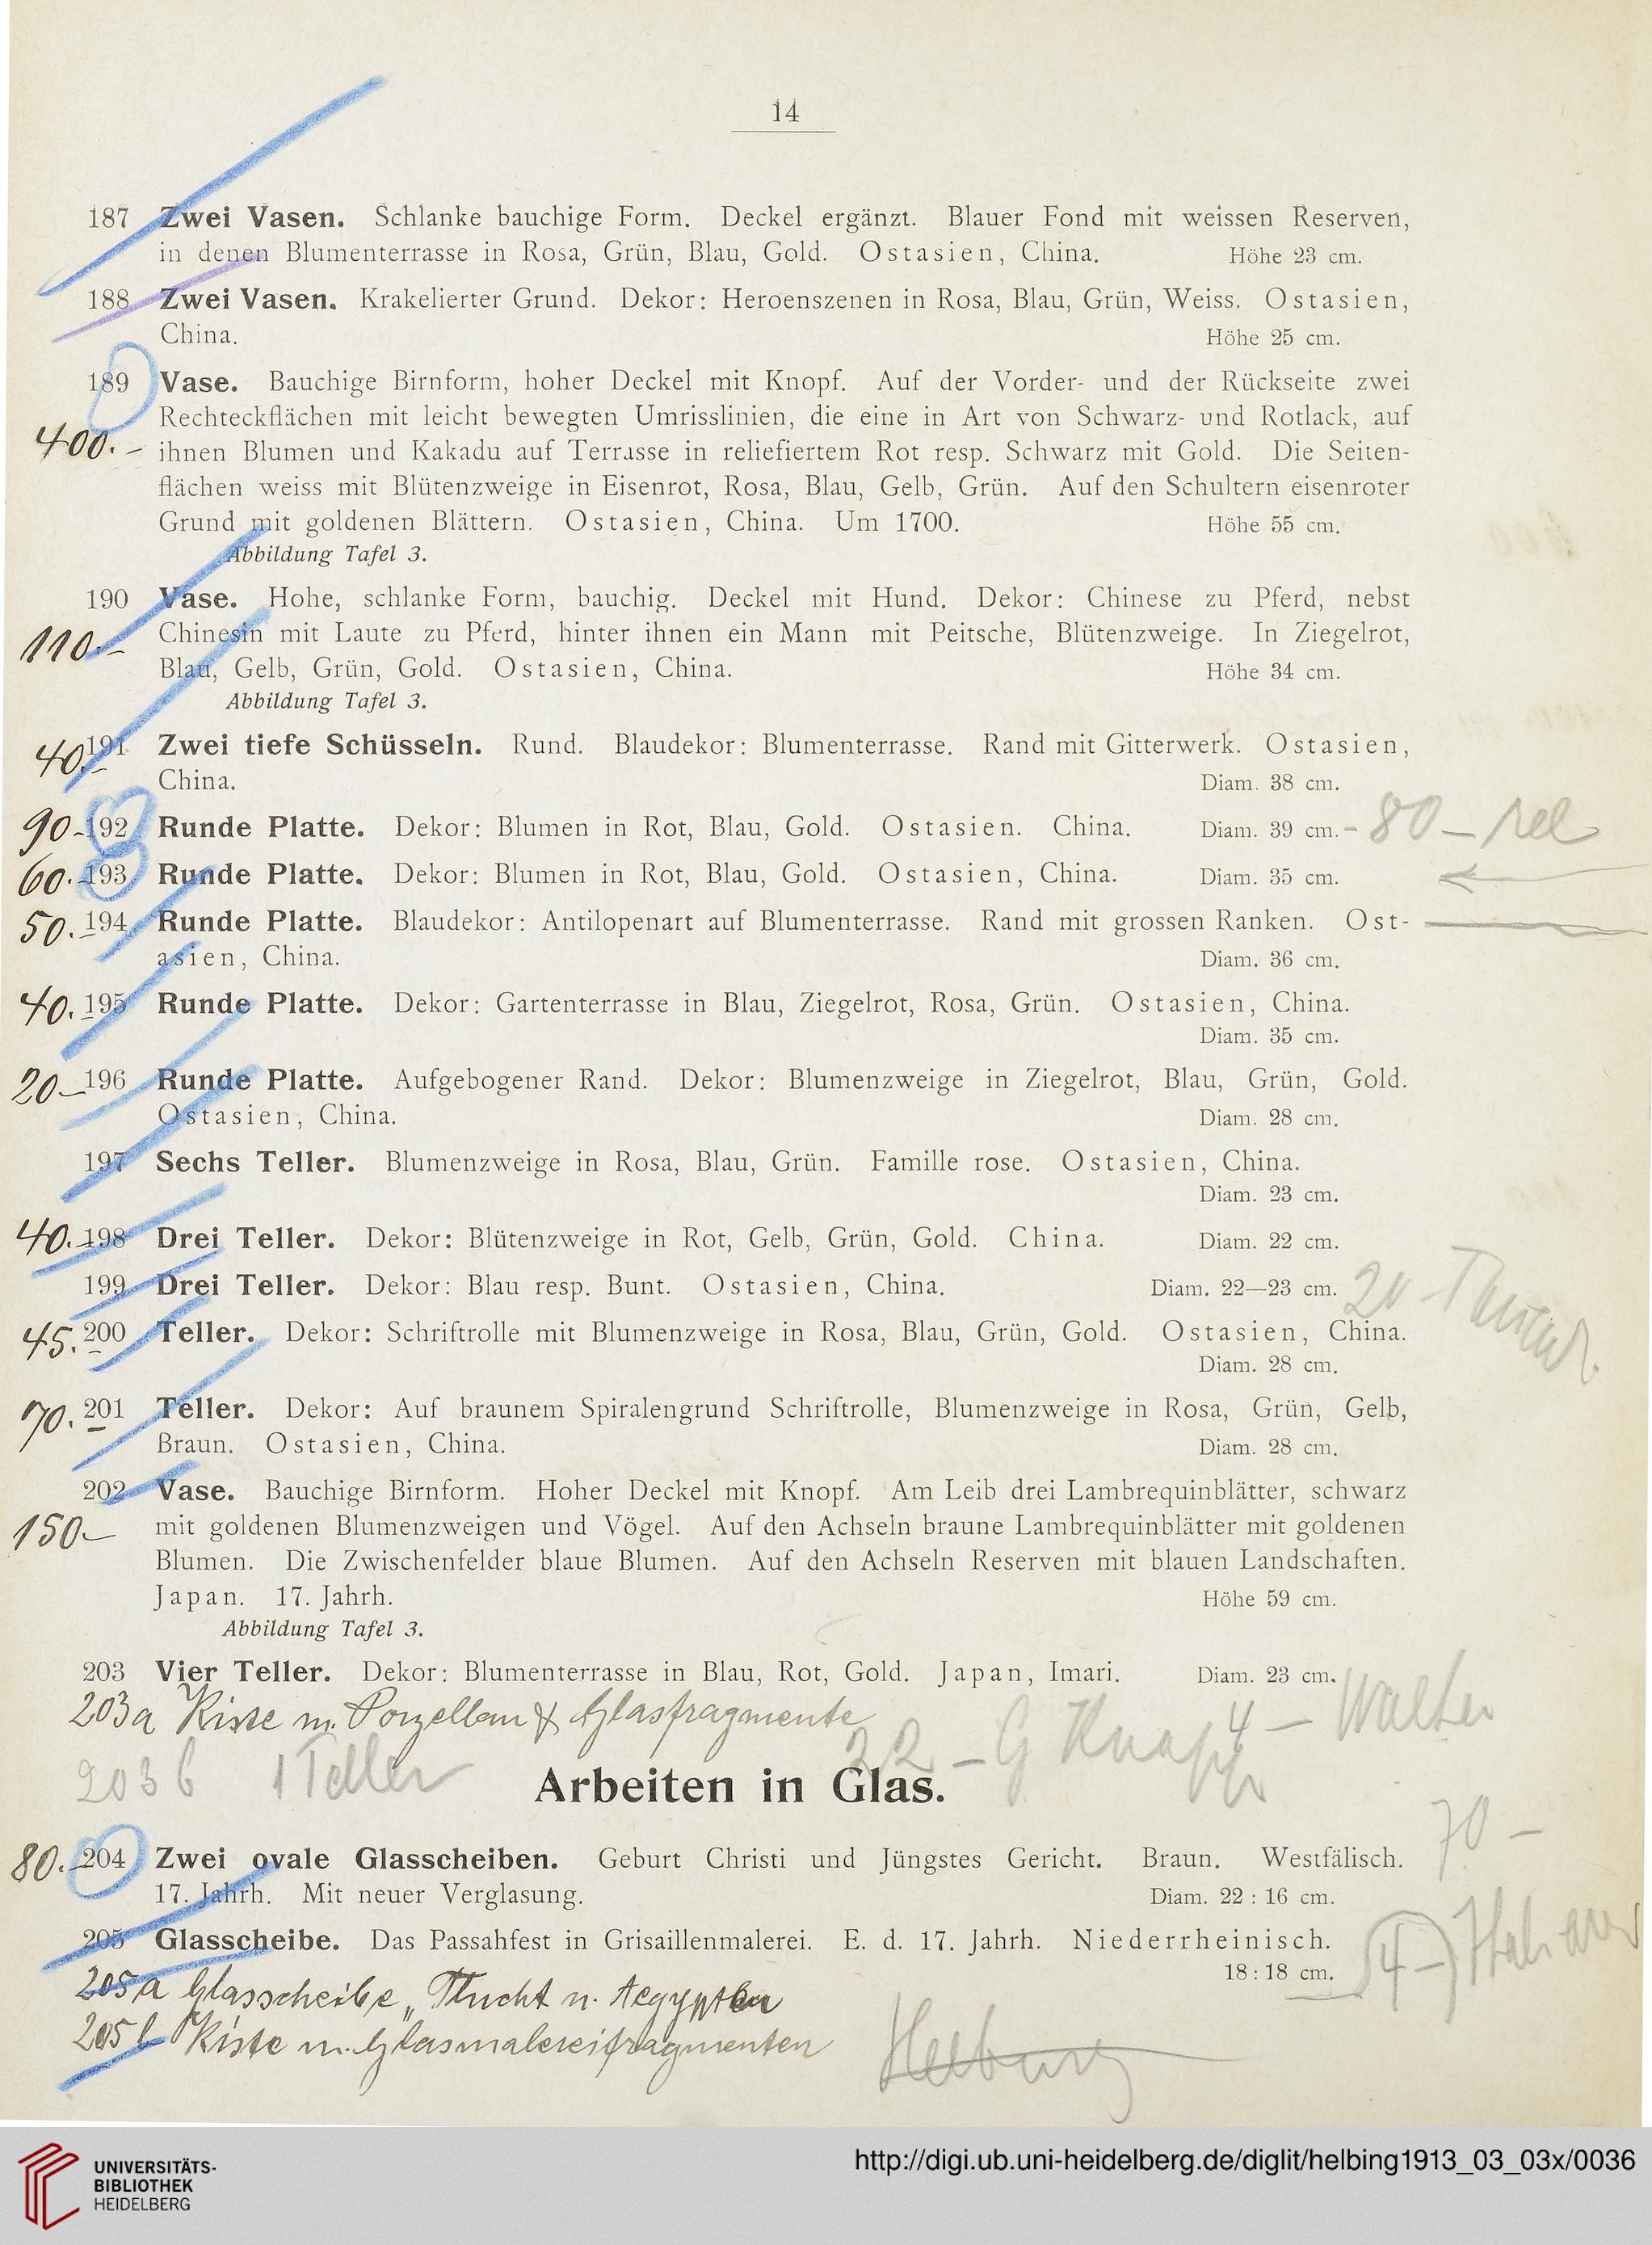 14
187 Zwei Vasen. Schlanke bauchige Form. Deckel ergänzt. Blauer Fond mit weissen Reserven,
in denen Blumenterrasse in Rosa, Grün, Blau, Gold. Ostasien, China. Höhe 23 cm.
188 Zwei Vasen. Krakelierter Grund. Dekor: Heroenszenen in Rosa, Blau, Grün, Weiss. Ostasien,
China. Höhe 25 cm.
189 Vase. Bauchige Birnform, hoher Deckel mit Knopf. Auf der Vorder- und der Rückseite zwei
Rechteckflächen mit leicht bewegten Umrisslinien, die eine in Art von Schwarz- und Rotlack, auf
400.- ihnen Blumen und Kakadu auf Terrasse in reliefiertem Rot resp. Schwarz mit Gold. Die Seiten-
flächen weiss mit Blütenzweige in Eisenrot, Rosa, Blau, Gelb, Grün. Auf den Schultern eisenroter
Grund mit goldenen Blättern. Ostasien, China. Um 1700. Höhe 55 cm.
Abbildung Tafel 3.
190 Vase. Hohe, schlanke Form, bauchig. Deckel mit Hund. Dekor: Chinese zu Pferd, nebst
110.- Chinesin mit Laute zu Pferd, hinter ihnen ein Mann mit Peitsche, Blütenzweige. In Ziegelrot,
Blau, Gelb, Grün, Gold. Ostasien, China. Höhe 34 cm.
Abbildung Tafel 3.
40.- 191 Zwei tiefe Schüsseln. Rund. Blaudekor: Blumenterrasse. Rand mit Gitterwerk. Ostasien,
China. Diam. 38 cm.
90.- 192 Runde Platte. Dekor: Blumen in Rot, Blau, Gold. Ostasien. China. Diam. 39 cm. - 80 -
60.- 193 Runde Platte. Dekor: Blumen in Rot, Blau, Gold. Ostasien, China. Diam. 35 cm.
50.- 194 Runde Platte. Blaudekor: Antilopenart auf Blumenterrasse. Rand mit grossen Ranken. Ost-
asien, China. Diam. 36 cm.
40.- 195 Runde Platte. Dekor: Gartenterrasse in Blau, Ziegelrot, Rosa, Grün. Ostasien, China.
Diam. 35 cm.
20.- 196 Runde Platte. Aufgebogener Rand. Dekor: Blumenzweige in Ziegelrot, Blau, Grün, Gold.
Ostasien, China. Diam. 28 cm.
197 Sechs Teller. Blumenzweige in Rosa, Blau, Grün. Famille rose. Ostasien, China.
Diam. 23 cm.
40.- 198 Drei Teller. Dekor: Blütenzweige in Rot, Gelb, Grün, Gold. China. Diam. 22 cm.
199 Drei Teller. Dekor: Blau resp. Bunt. Ostasien, China. Diam. 22—23 cm.
45.- 200 Teller. Dekor: Schriftrolle mit Blumenzweige in Rosa, Blau, Grün, Gold. Ostasien, China.
Diam. 28 cm.
70.- 201 Teller. Dekor: Auf braunem Spiralengrund Schriftrolle, Blumenzweige in Rosa, Grün, Gelb,
Braun. Ostasien, China. Diam. 28 cm.
202 Vase. Bauchige Birnform. Hoher Deckel mit Knopf. Am Leib drei Lambrequinblätter, schwarz
150.- mit goldenen Blumenzweigen und Vögel. Auf den Achseln braune Lambrequinblätter mit goldenen
Blumen. Die Zwischenfelder blaue Blumen. Auf den Achseln Reserven mit blauen Landschaften.
Japan. 17. Jahrh. Höhe 59 cm.
Abbildung Tafel 3.
203 Vier Teller. Dekor: Blumenterrasse in Blau, Rot, Gold. Japan, Imari. Diam. 23 cm.
203a Kiste m. Porzellan & Glasfragmente 4 — Walter
203b 1 Teller 22 - G Knapp
Arbeiten in Glas.
70 -
80.- 204 Zwei ovale Glasscheiben. Geburt Christi und Jüngstes Gericht. Braun. Westfälisch.
17. Jahrh. Mit neuer Verglasung. Diam. 22 : 16 cm.
205 Glasscheibe. Das Passahfest in Grisaillenmalerei. E. d. 17. Jahrh. Niederrheinisch.
18 : 18 cm.
205a Glasscheibe „Flucht n. Aegypten
205b Kiste m. Glasmalereifragmenten
UNIVERSITÄTS-
BIBLIOTHEK
HEIDELBERG
http://digi.ub.uni-heidelberg.de/diglit/helbing1913_03_03x/0036